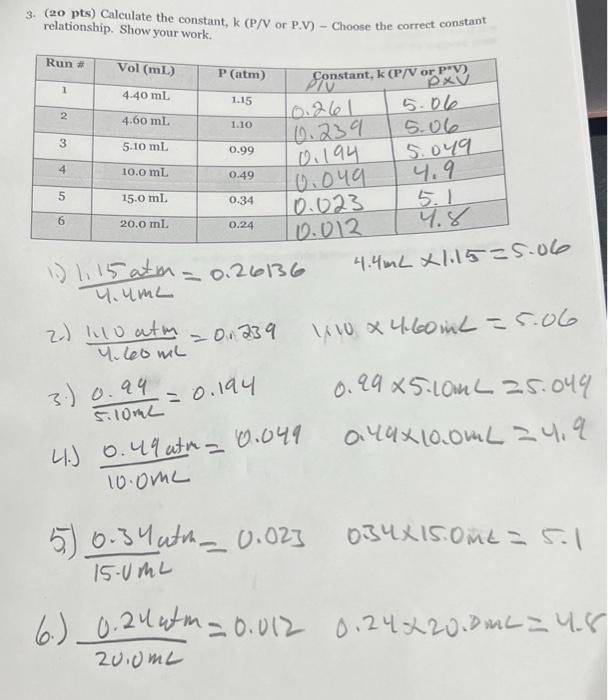 3. (20 pts) Calculate the constant, k (P/V or P.V) – Choose the correct constant
relationship. Show your work.
Run # Vol (mL) P (atm) Constant, k (P/V or P*V)
P/V PxV
1 4.40 mL 1.15 0.261 5.06
2 4.60 mL 1.10 0.239 5.06
3 5.10 mL 0.99 0.194 5.049
4 10.0 mL 0.49 0.049 4.9
5 15.0 mL 0.34 0.023 5.1
6 20.0 mL 0.24 0.012 4.8
1.) 1.15 atm = 0.26136 4.4mL x1.15 = 5.06
4.4mL
2.) 1.10 atm = 0.239 1.10 x 4.60mL = 5.06
4.60 mL
3.) 0.99 = 0.194 0.99 x5.10mL = 5.049
5.10mL
4.) 0.49 atm = 0.049 0.49x10.0mL = 4.9
10.0mL
5.) 0.34 atm = 0.023 0.34x15.0mL = 5.1
15.0mL
6.) 0.24 atm = 0.012 0.24 x20.0mL = 4.8
20.0mL